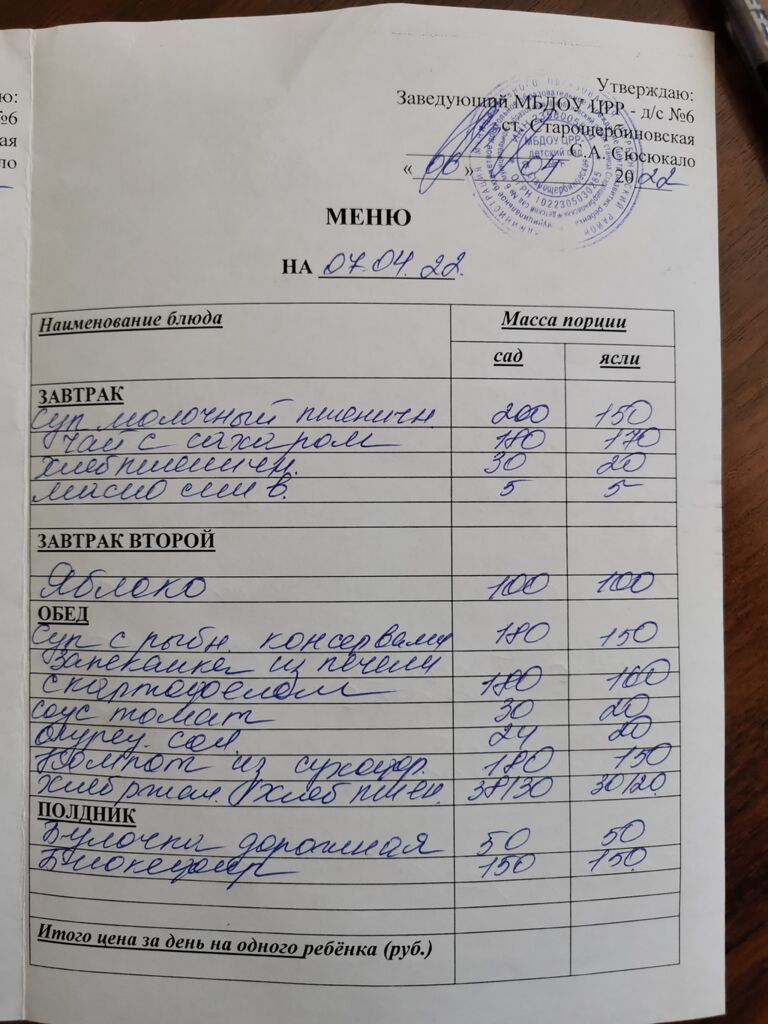 ю:
№6
кая
кало
Утверждаю:
Заведующий МБДОУ ЦРР - д/с №6
ст. Старощербиновская
С.А. Сюсюкало
« 06 » 04 2022
МЕНЮ
НА 07.04.22.
Наименование блюда Масса порции
сад ясли
ЗАВТРАК
Суп молочный пшеничн. 200 150
Чай с сахаром 180 170
Хлеб пшеничн. 30 20
масло слив. 5 5
ЗАВТРАК ВТОРОЙ
Яблоко 100 100
ОБЕД
Суп с рыбн. консервами 180 150
Запеканка из печени
с картофелем 180 160
соус томат 30 20
огурец. сол. 24 20
Компот из сухофр. 180 150
Хлеб ржан. / хлеб пшен. 38/30 30/20.
ПОЛДНИК
Булочка дорожная 50 50
Биокефир 150 150.
Итого цена за день на одного ребёнка (руб.)
МБДОУ ЦРР-
детский сад
ОГРН 1022305030285